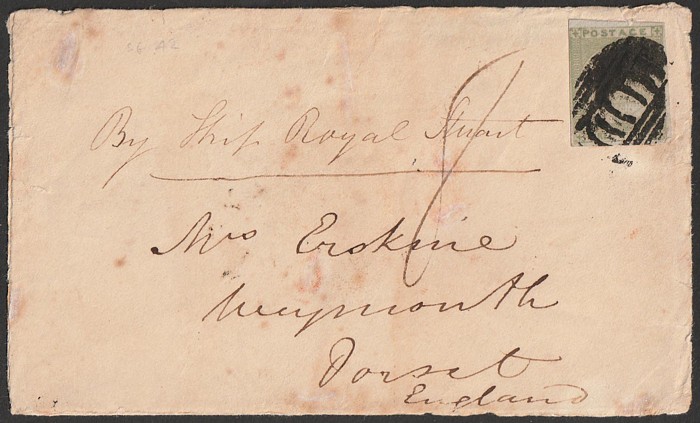 POSTAGE
By Ship Royal Stuart
Mrs Erskine
Weymouth
Dorset
England